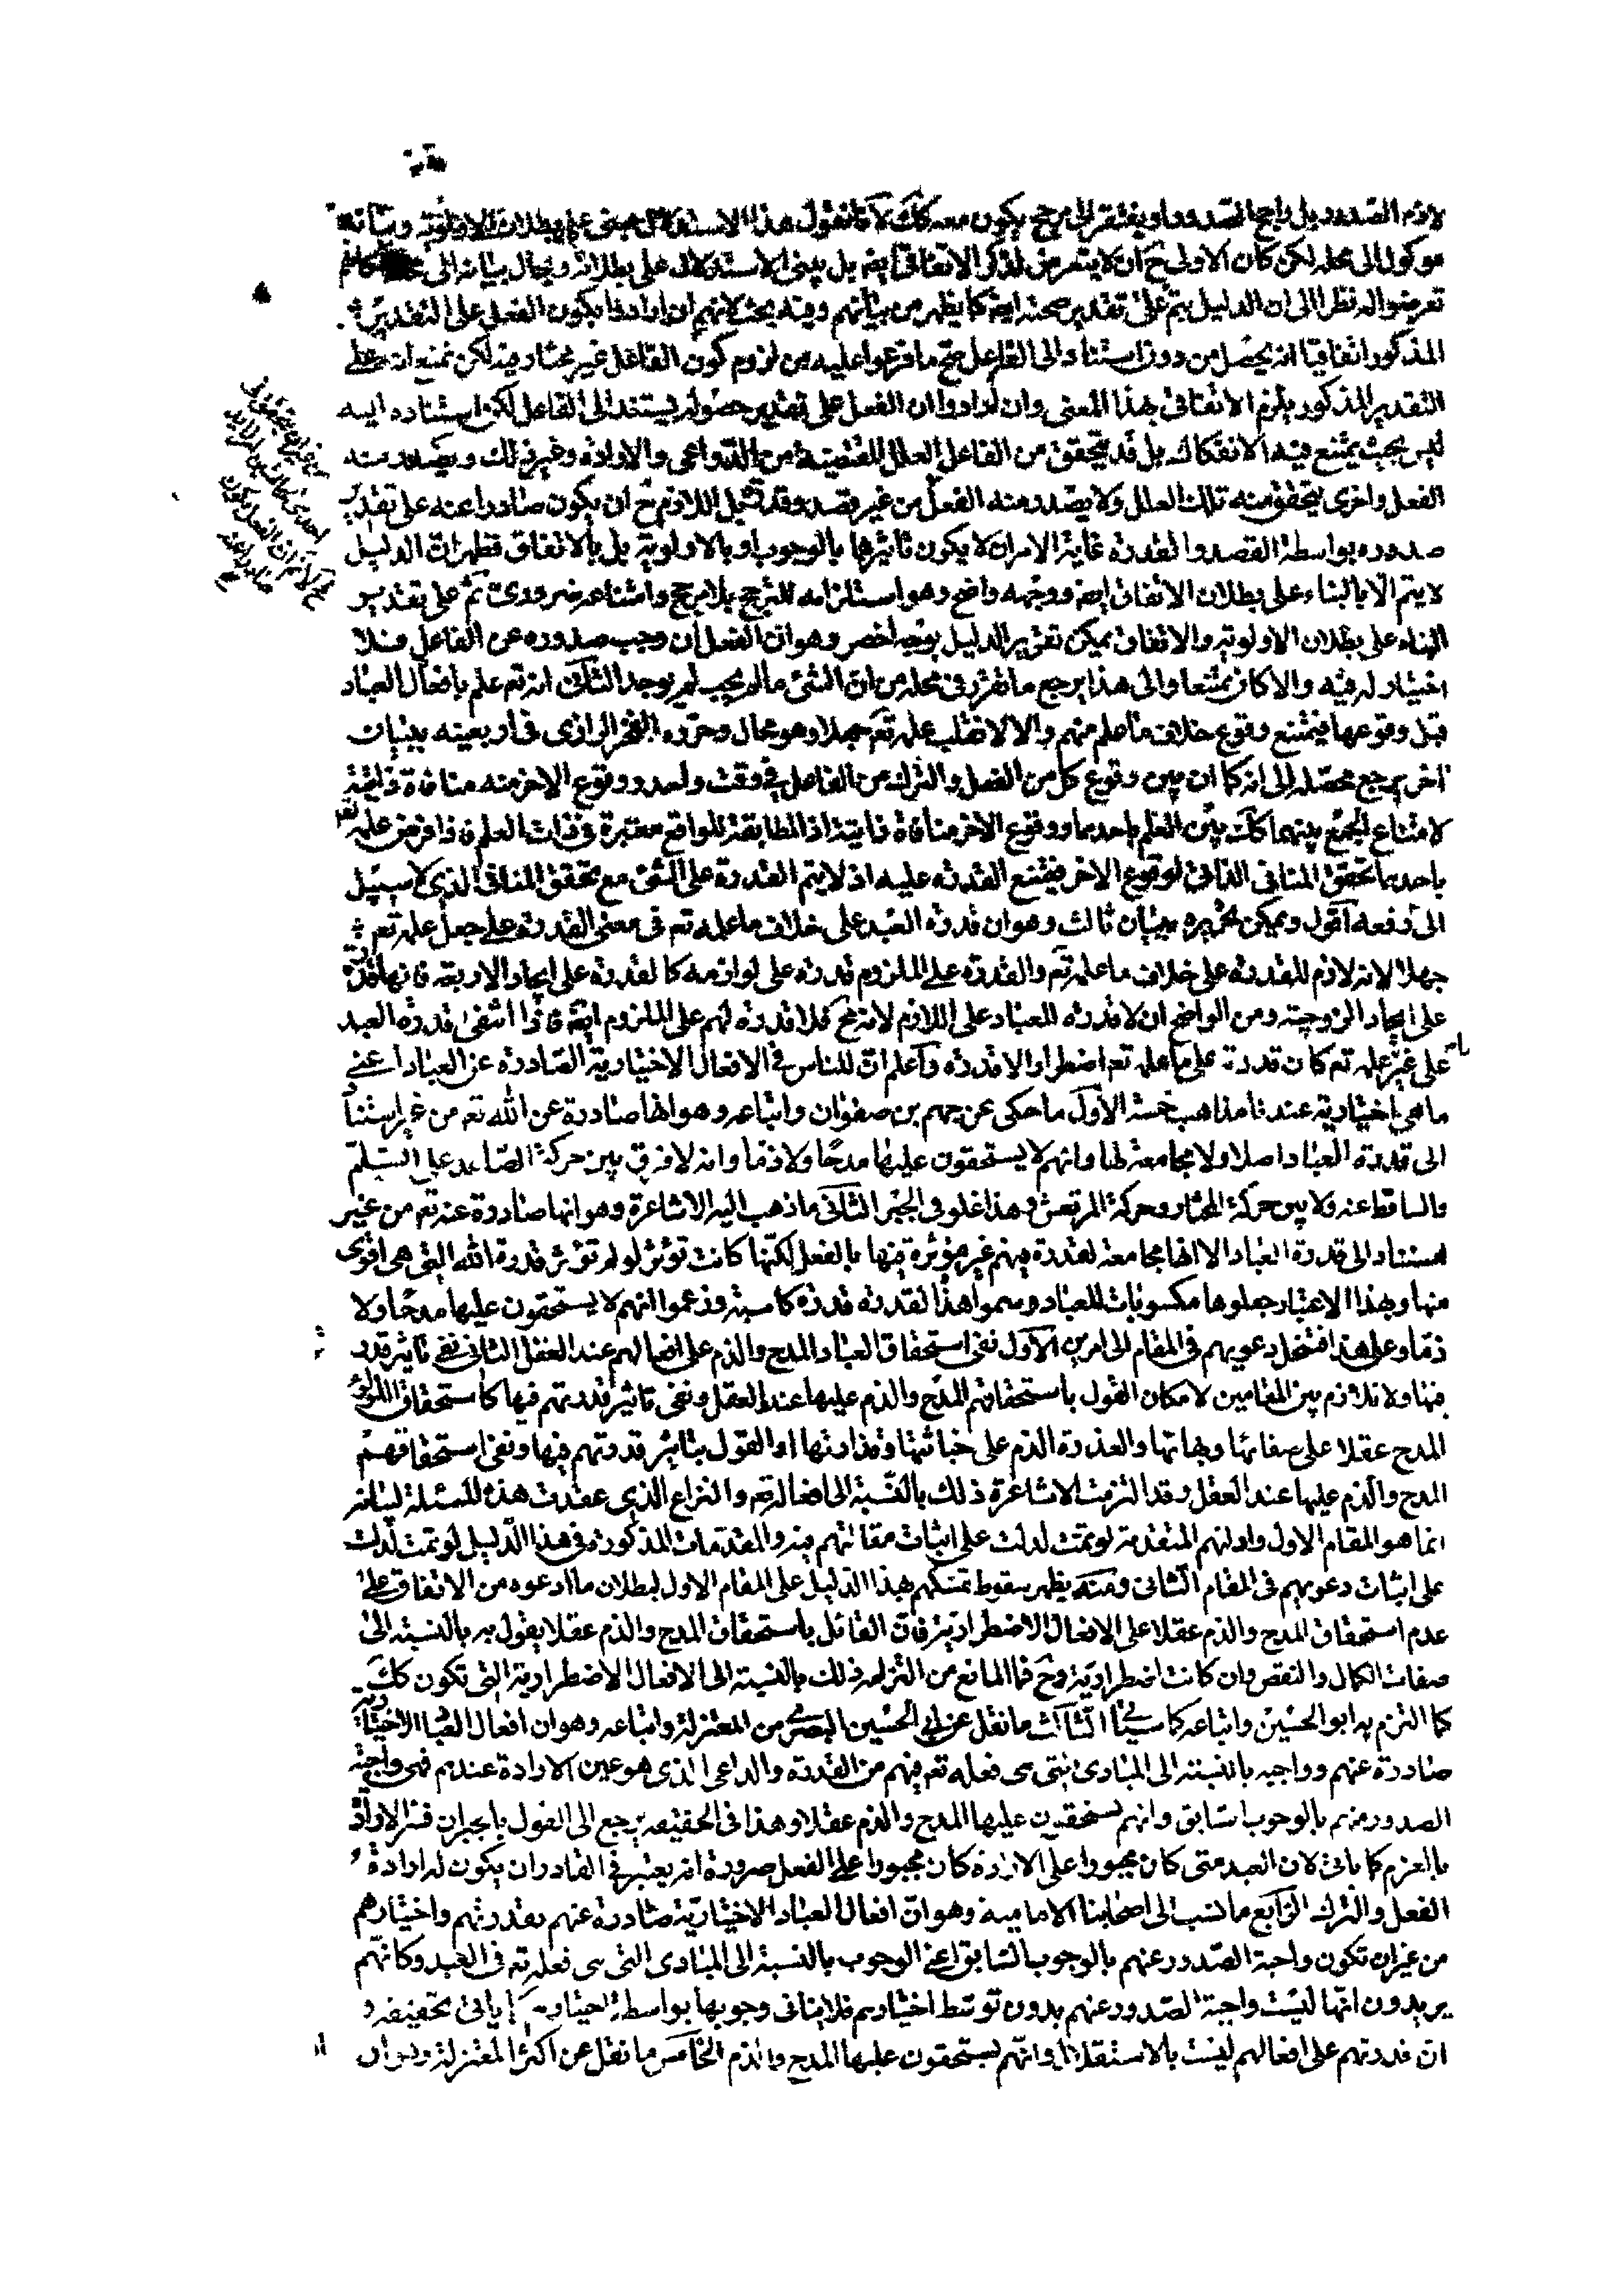 لازم الصّدور بل راجح الصّدور او يفتقر الى مرجح يكون معه كك لأنا نقول هذا الاستدلال مبنى على بطلان الاولويّة وبيانه
موكول الى محله لكن كان الاولى ح ان لا يتعرض لذكر الاتفاقى ايضا بل يبنى الاستدلال على بطلانه ويحال بيانه الى
تعرضوا له نظرا الى ان الدليل يتم على تقدير صحته ايضا كما يظهر من بيانهم وفيه بحث لانهم ان ارادوا بكون الفعل على التقدير
المذكور اتفاقيا انه يحصل من دون استناد الى الفاعل صح ما فرعوا عليه من لزوم كون الفاعل غير مختار فيه لكن نمنع انه على
التقدير المذكور يلزم الاتفاقى بهذا المعنى وان ارادوا ان الفعل على تقدير حصوله يستند الى الفاعل لكن استناده اليه
ليس بحيث يمتنع فيه الانفكاك بل قد يتحقق من الفاعل العلل المقتضية من الدّواعى والارادة وغير ذلك ويصدر منه
الفعل واخرى يتحقق منه تلك العلل ولا يصدر منه الفعل من غير قصد وقد اللازم ح ان يكون صادرا عنه على تقدير
صدوره بواسطة القصد والقدرة غاية الامر ان لا يكون تاثيرها بالوجوب او بالاولوية بل بالاتفاق فظهر ان الدليل
لا يتم الا بالبناء على بطلان الاتفاق ايضا ووجهه واضح وهو استلزامه للترجيح بلا مرجح وامتناعه ضرورى ثم على تقدير
البناء على بطلان الاولوية والاتفاق يمكن تقرير الدليل بوجه اخصر وهو ان الفعل ان وجب صدوره عن الفاعل فلا
اختيار له فيه والا كان ممتنعا والى هذا يرجع ما تقرر فى محله من ان الشئ ما لم يجب لم يوجد الثانى انه تعم علم بافعال العباد
قبل وقوعها فيمتنع وقوع خلاف ما علم منهم والا لانقلب علمه تعم جهلا وهو محال وحرّره الفخر الرازى فى اربعينه ببيان
اخر يرجع محصّله الى انه كما ان بين وقوع كل من الفعل والترك من الفاعل فى وقت واحد ووقوع الاخر منه منافاة ذاتية
لامتناع الجمع بينهما كك بين العلم باحدهما ووقوع الاخر منافاة ذاتية اذ المطابقة للواقع معتبرة فى ذات العلم فاذا فرض علمه تعم
باحدهما تحقق المنافى الذاتى لوقوع الاخر فيمتنع القدرة عليه اذ لا يتم القدرة على الشئ مع تحقق المنافى الذى لا سبيل
الى رفعه اقول ويمكن تحريره ببيان ثالث وهو ان قدرة العبد على خلاف ما علمه تعم فى معنى القدرة على جعل علمه تعم
جهلا لانه لازم للقدرة على خلاف ما علمه تعم والقدرة على الملزوم قدرة على لوازمه كالقدرة على ايجاد الاربعة فانها قدرة
على ايجاد الزوجية ومن الواضح ان لا قدرة للعباد على اللازم لانه مح فلا قدرة لهم على الملزوم ايضا فاذا انتفى قدرة العبد
على غير ما علمه تعم كان قدرته على ما علمه تعم اضطرارا لا قدرة واعلم ان للناس فى الافعال الاختيارية الصّادرة عن العباد اعنى
ما هى اختيارية عندنا مذاهب خمسة الاول ما حكى عن جهم بن صفوان واتباعه وهو انها صادرة عن الله تعم من غير استناد
الى قدرة العباد اصلا ولا مجامعة لها وانهم لا يستحقون عليها مدحا ولا ذما وانه لا فرق بين حركة الصّاعد على السّلّم
والساقط عنه ولا بين حركة المختار وحركة المرتعش وهذا غلو فى الجبر الثانى ما ذهب اليه الاشاعرة وهو انها صادرة عنه تعم من غير
استناد الى قدرة العباد الا انها مجامعة لقدرة منهم غير مؤثرة فيها بالفعل لكنّها كانت تؤثر لو لم تؤثر قدرة الله التى هى اقوى
منها وبهذا الاعتبار جعلوها مكسوبات للعباد وسموا هذا القدرة قدرة كاسبة وزعموا انهم لا يستحقون عليها مدحا ولا
ذما وعلى هذا فتنحل دعويهم فى المقام الى امرين الاول نفى استحقاق العباد المدح والذم على افعالهم عند العقل الثانى نفى تاثير قدرتهم
فيها ولا تلازم بين المقامين لامكان القول باستحقاقهم المدح والذم عليها عند العقل ونفى تاثير قدرتهم فيها كاستحقاق اللؤلؤ
المدح عقلا على صفائها وبهائها والعذرة الذم على خباثتها وقذارتها او القول بتاثير قدرتهم فيها ونفى استحقاقهم
المدح والذم عليها عند العقل وقد التزمت الاشاعرة ذلك بالنّسبة الى افعاله تعم والنزاع الذى عقدت هذه المسئلة لبيانه
انما هو المقام الاول وادلتهم المتقدمة لو تمت لدلت على اثبات مقالتهم فيه والمقدمات المذكورة فى هذا الدّليل لو تمت لدلت
على اثبات دعويهم فى المقام الثانى ومنه يظهر سقوط تمسّكهم بهذا الدّليل على المقام الاول لبطلان ما ادعوه من الاتفاق على
عدم استحقاق المدح والذم عقلا على الافعال الاضطرارية فان القائل باستحقاق المدح والذم عقلا يقول به بالنسبة الى
صفات الكمال والنقص وان كانت اضطرارية وح فما المانع من التزامه ذلك بالنسبة الى الافعال الاضطرارية التى تكون كك
كما التزم به ابو الحسين واتباعه كما سياتى الثالث ما نقل عن ابى الحسين البصرى من المعتزلة واتباعه وهو ان افعال العباد الاختيارية
صادرة عنهم وواجبه بالنسبة الى المبادئ التى هى فعله تعم فيهم من القدرة والداعى الذى هو عين الارادة عندهم فهى واجبة
الصدور منهم بالوجوب السّابق وانهم يستحقون عليها المدح والذم عقلا وهذا فى الحقيقة يرجع الى القول بالجبر ان فسّر الارادة
بالعزم كما ياتى لان العبد متى كان مجبورا على الارادة كان مجبورا على الفعل ضرورة انه يعتبر فى القادر ان يكون له ارادة
الفعل والترك الرّابع ما نسب الى اصحابنا الامامية وهو ان افعال العباد الاختيارية صادرة عنهم بقدرتهم واختيارهم
من غير ان تكون واجبة الصّدور عنهم بالوجوب السّابق اعنى الوجوب بالنسبة الى المبادى التى هى فعله تعم فى العبد وكانّهم
يريدون انّها ليست واجبة الصّدور عنهم بدون توسّط اختيارهم فلا ينافى وجوبها بواسطة اختيارهم كما ياتى تحقيقه و
ان قدرتهم على افعالهم ليست بالاستقلال وانّهم يستحقون عليها المدح والذم الخامس ما نقل عن اكثر المعتزلة وهو ان